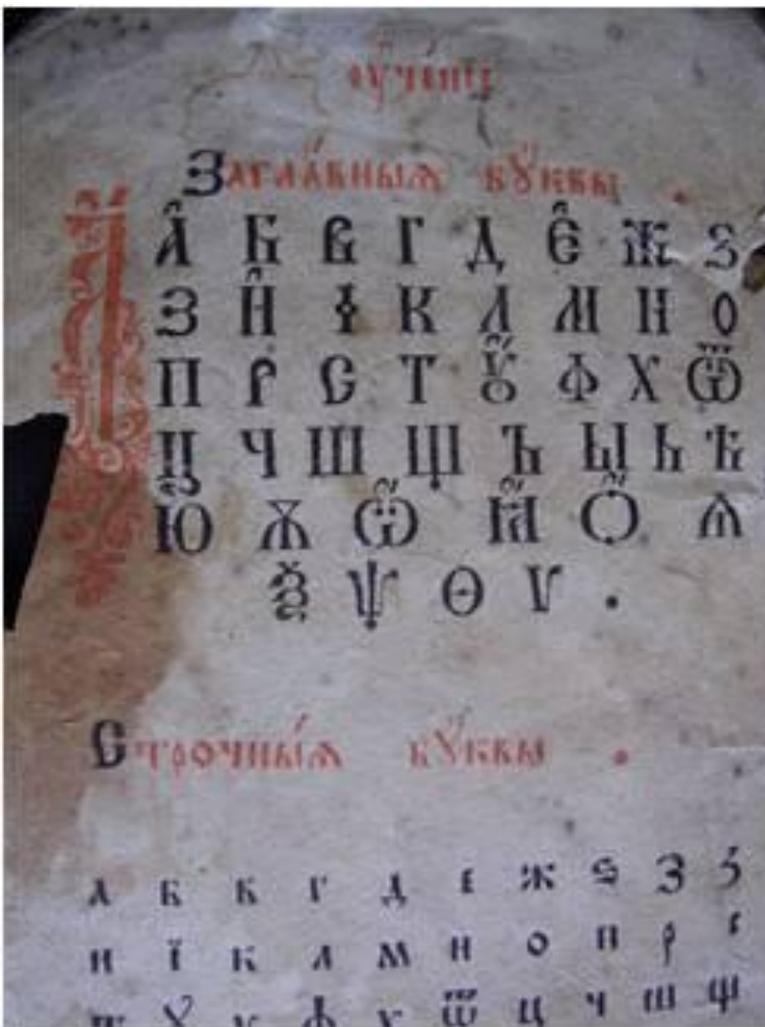 Загла́вныѧ бꙋ́квы .
А҆ Б В Г Д Є҆ Ж Ѕ
З И҆ І К Л М Н О
П Р С Т Ꙋ҆ Ф Х Ѿ
Ц Ч Ш Щ Ъ Ы Ь Ѣ
Ю҆ Ѫ Ѽ Ꙗ҆ Ѻ҆ Ѧ
Ѯ Ѱ Ѳ Ѵ .
Строчны́ѧ бꙋ́квы .
а б в г д е ж ѕ з
и ї к л м н о п р с
т ꙋ ф х ѿ ц ч ш щ